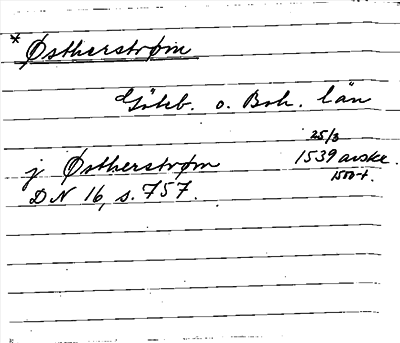 * Østherstrøm
Göteb. o. Boh. län
25/3
j Østherstrøm 1539 avskr.
1500-t.
DN 16, s. 757.